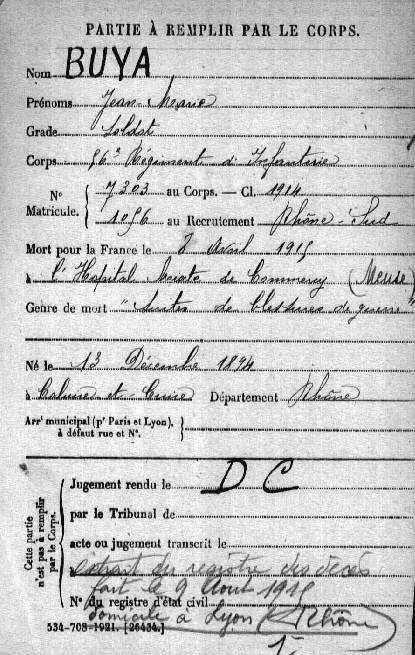 PARTIE À REMPLIR PAR LE CORPS.
Nom BUYA
Prénoms Jean-Marie
Grade Soldat
Corps 56e Régiment d'Infanterie
N° Matricule. { 7303 au Corps. — Cl. 1914
1056 au Recrutement Rhône-Sud
Mort pour la France le 7 Avril 1915
à l'Hopital Mixte de Commercy (Meuse)
Genre de mort "Suites de blessures de guerre"
Né le 13 Décembre 1894
à Caluire-et-Cuire Département Rhône
Arr' municipal (p' Paris et Lyon),
à défaut rue et N°.
Cette partie n'est pas à remplir par le Corps.
Jugement rendu le D C
par le Tribunal de
acte ou jugement transcrit le
à extrait du registre des décès
fait le 9 Aout 1915
N° du registre d'état civil
domicilié à Lyon (Rhône)
534-708-1921. [26434.]